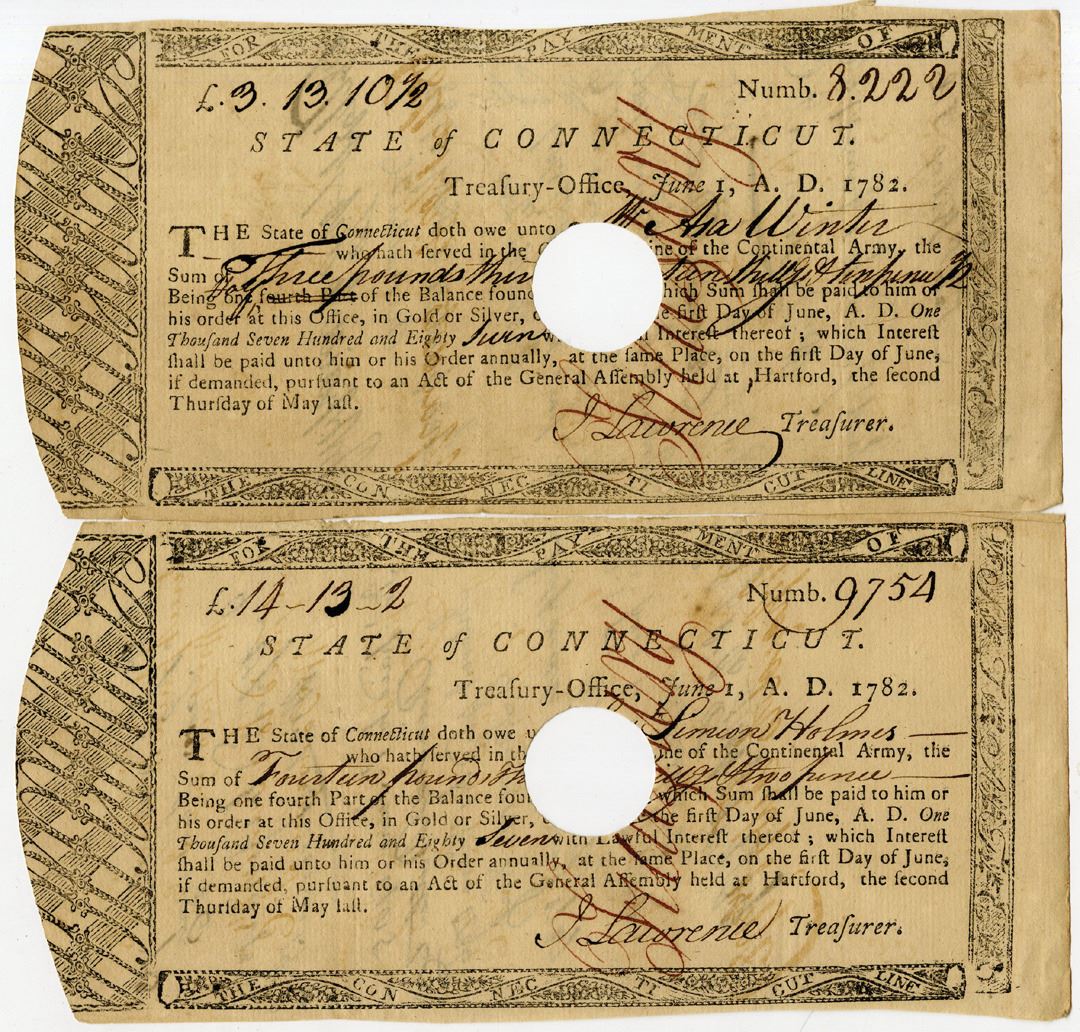 FOR THE PAY MENT OF
£.3.13.10½ Numb. 8.222
STATE of CONNECTICUT.
Treaſury-Office, June 1, A. D. 1782.
THE State of Connecticut doth owe unto Mr Asa Winter
who hath ſerved in the C ine of the Continental Army, the
Sum of Three pounds thir
Being one fourth Part of the Balance found hich Sum ſhall be paid to him or
his order at this Office, in Gold or Silver, e firſt Day of June, A. D. One
Thouſand Seven Hundred and Eighty Intereſt thereof ; which Intereſt
ſhall be paid unto him or his Order annually, at the ſame Place, on the firſt Day of June,
if demanded, purſuant to an Act of the General Aſſembly held at Hartford, the ſecond
Thurſday of May laſt.
J Lawrence Treaſurer.
THE CON NEC TI CUT LINE
FOR THE PAY MENT OF
£.14-13-2 Numb. 9754
STATE of CONNECTICUT.
Treaſury-Office, June 1, A. D. 1782.
THE State of Connecticut doth owe u Simeon Holmes
who hath ſerved in th ine of the Continental Army, the
Sum of Fourteen pounds th & two pence
Being one fourth Part of the Balance foun which Sum ſhall be paid to him or
his order at this Office, in Gold or Silver, the firſt Day of June, A. D. One
Thouſand Seven Hundred and Eighty Seven with Lawful Intereſt thereof ; which Intereſt
ſhall be paid unto him or his Order annually, at the ſame Place, on the firſt Day of June,
if demanded, purſuant to an Act of the General Aſſembly held at Hartford, the ſecond
Thurſday of May laſt.
J Lawrence Treaſurer.
THE CON NEC TI CUT LINE